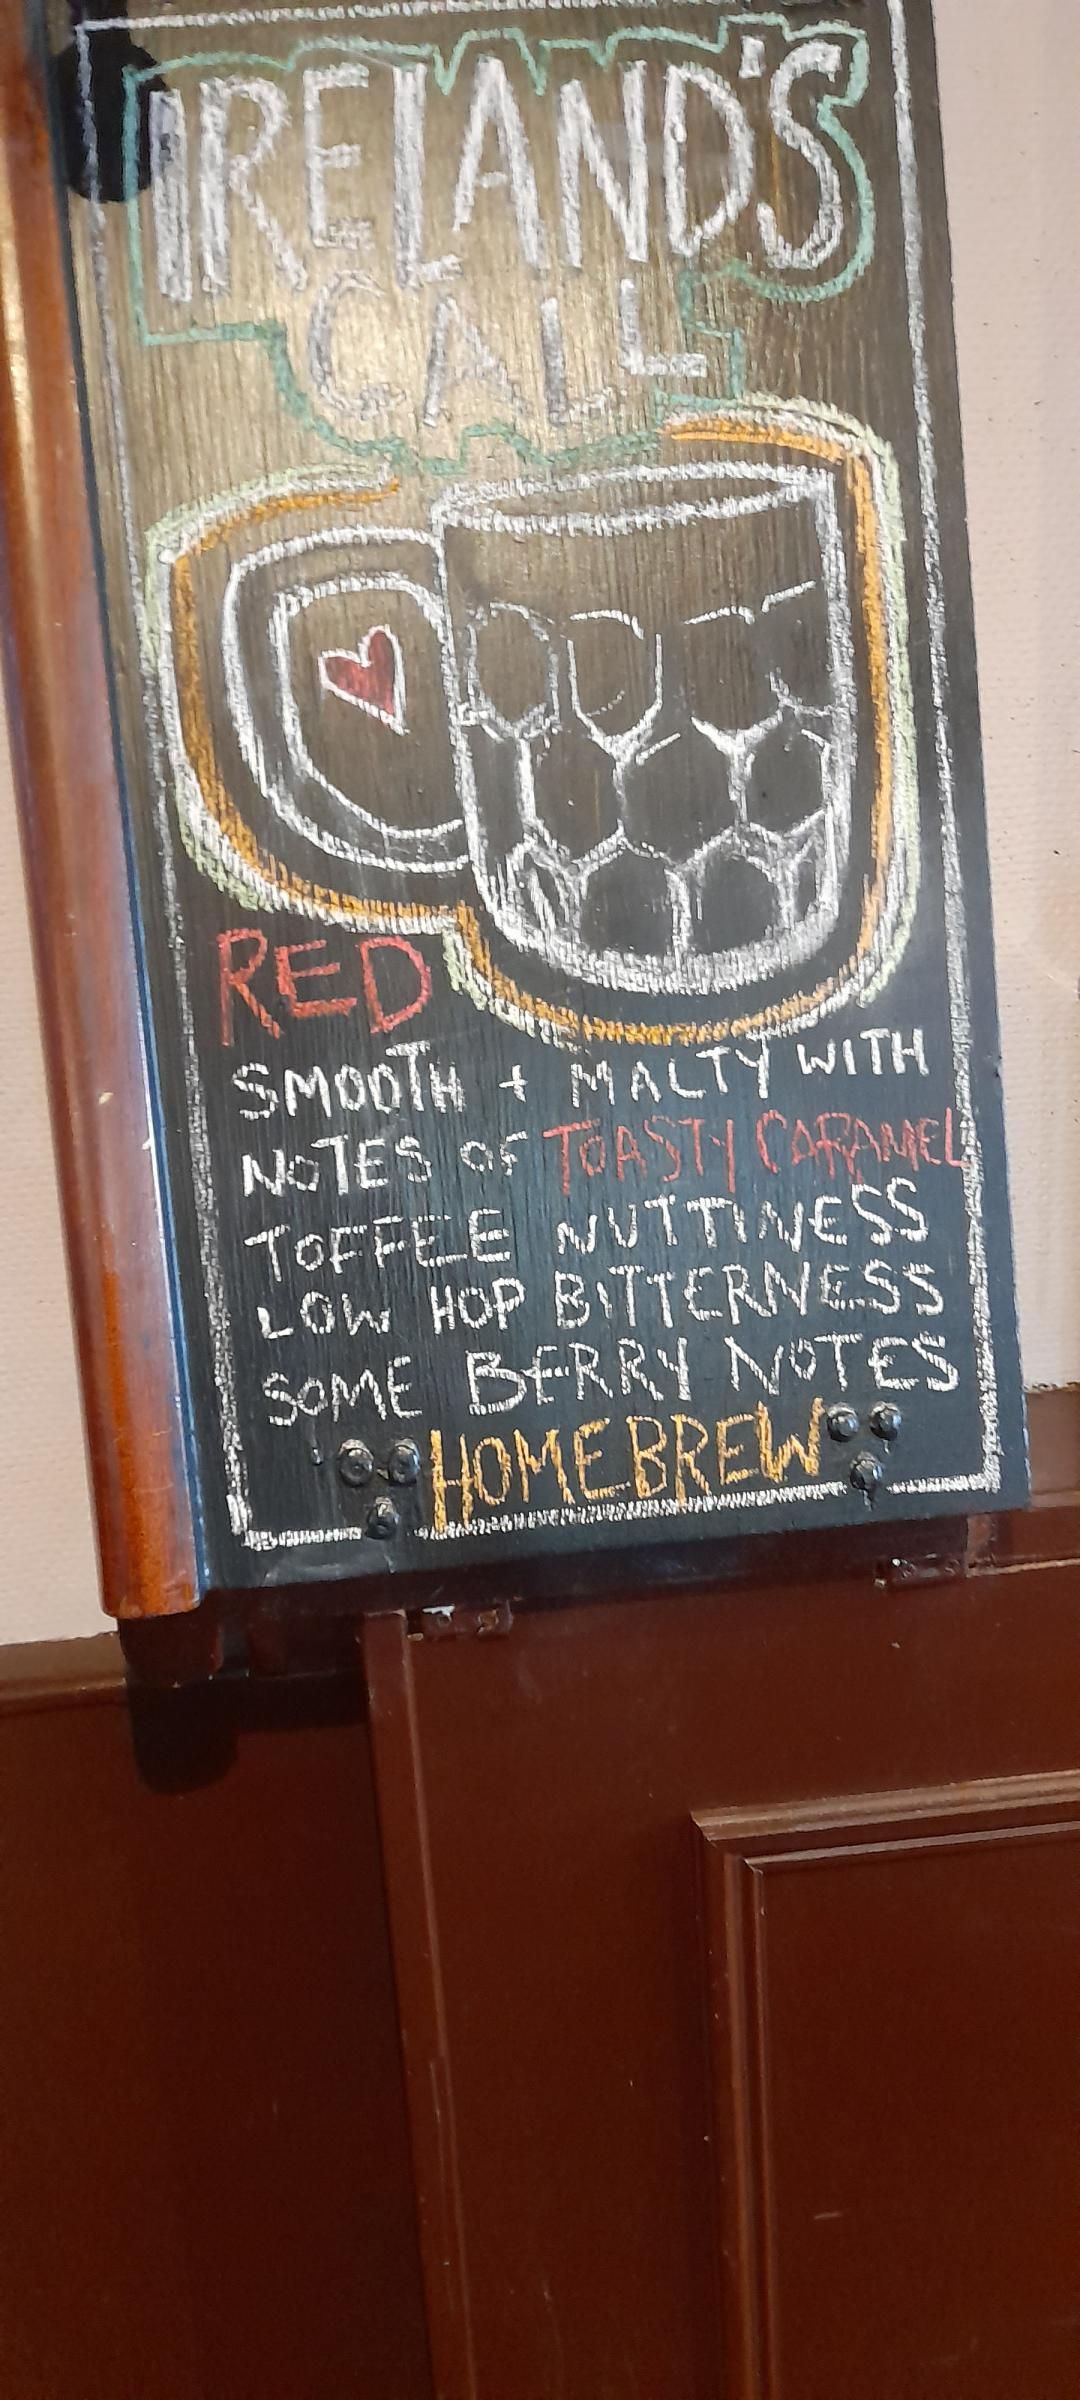 IRELAND'S
CALL
RED
SMOOTH + MALTY WITH
NOTES OF TOASTY CARAMEL
TOFFEE NUTTINESS
LOW HOP BITTERNESS
SOME BERRY NOTES
HOMEBREW